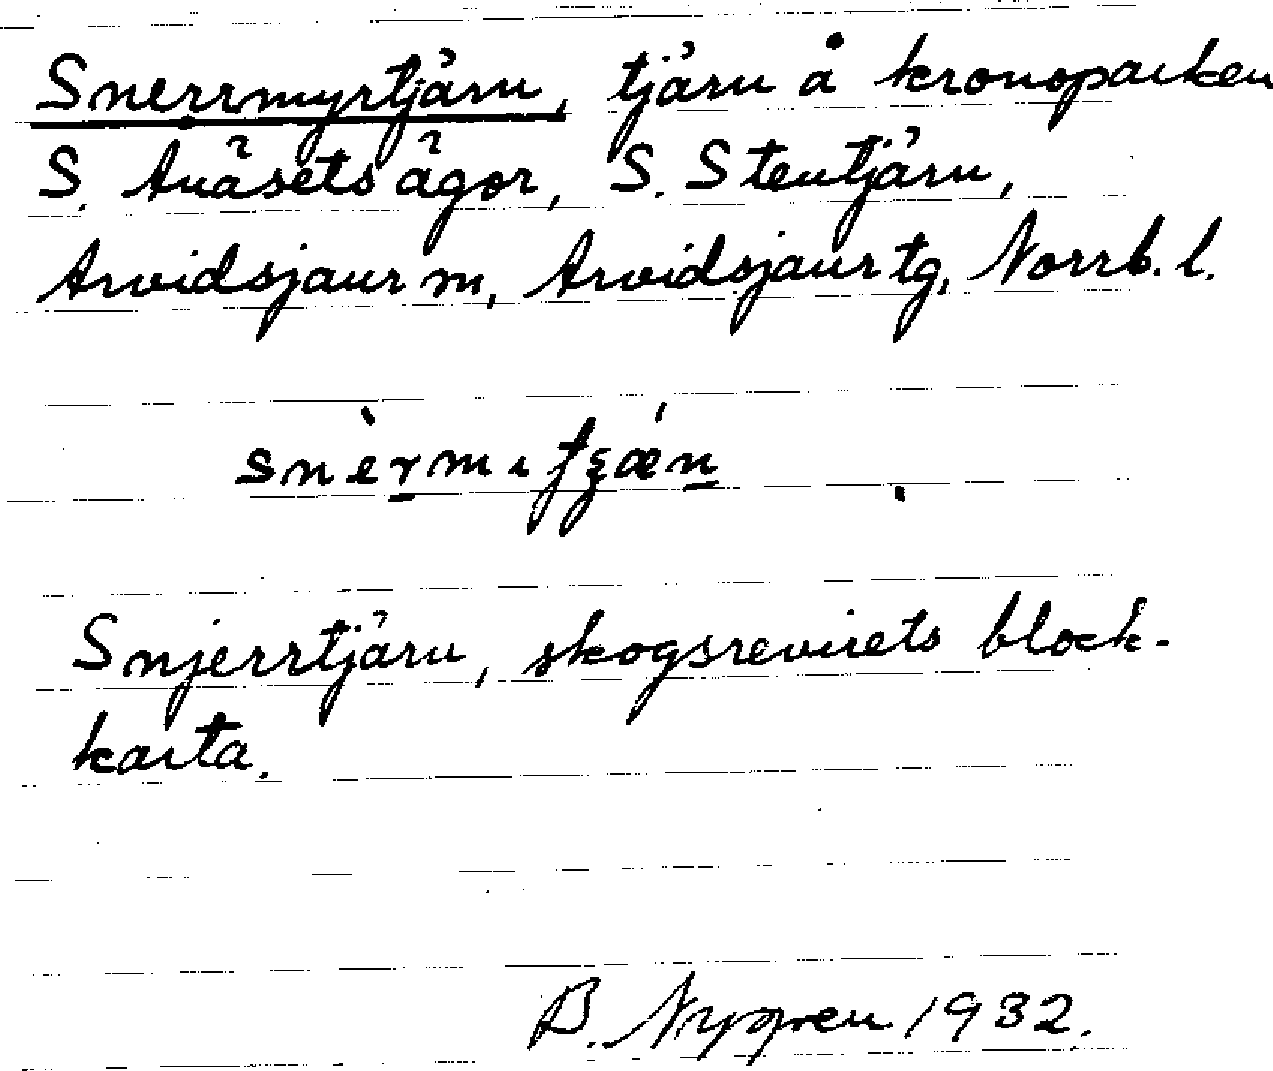 Snerrmyrtjärn, tjärn å kronoparken
S. Auåsets ägor, S. Stentjärn,
Arvidsjaur m, Arvidsjaur tg, Norrb. l.
Snjerrtjärn, skogsrevirets block-
karta.
B. Nygren 1932.